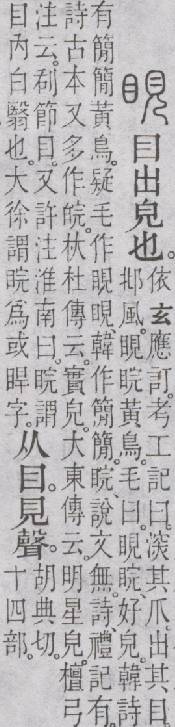 睍
目出皃也。
依玄應訂。考工記曰。深其爪。出其目。
邶風。睍睆黃鳥。毛曰。睍睆好皃。韓詩
有簡簡黃鳥。疑毛作睍睍。韓作簡簡。睆、說文無。詩、禮記有。
詩古本又多作皖。杕杜傳云。實皃。大東傳云。明星皃。檀弓
注云。刮節目。又許注淮南曰。睆謂
目內白翳也。大徐謂睆爲或睅字。
从目。見聲。
胡典切。
十四部。